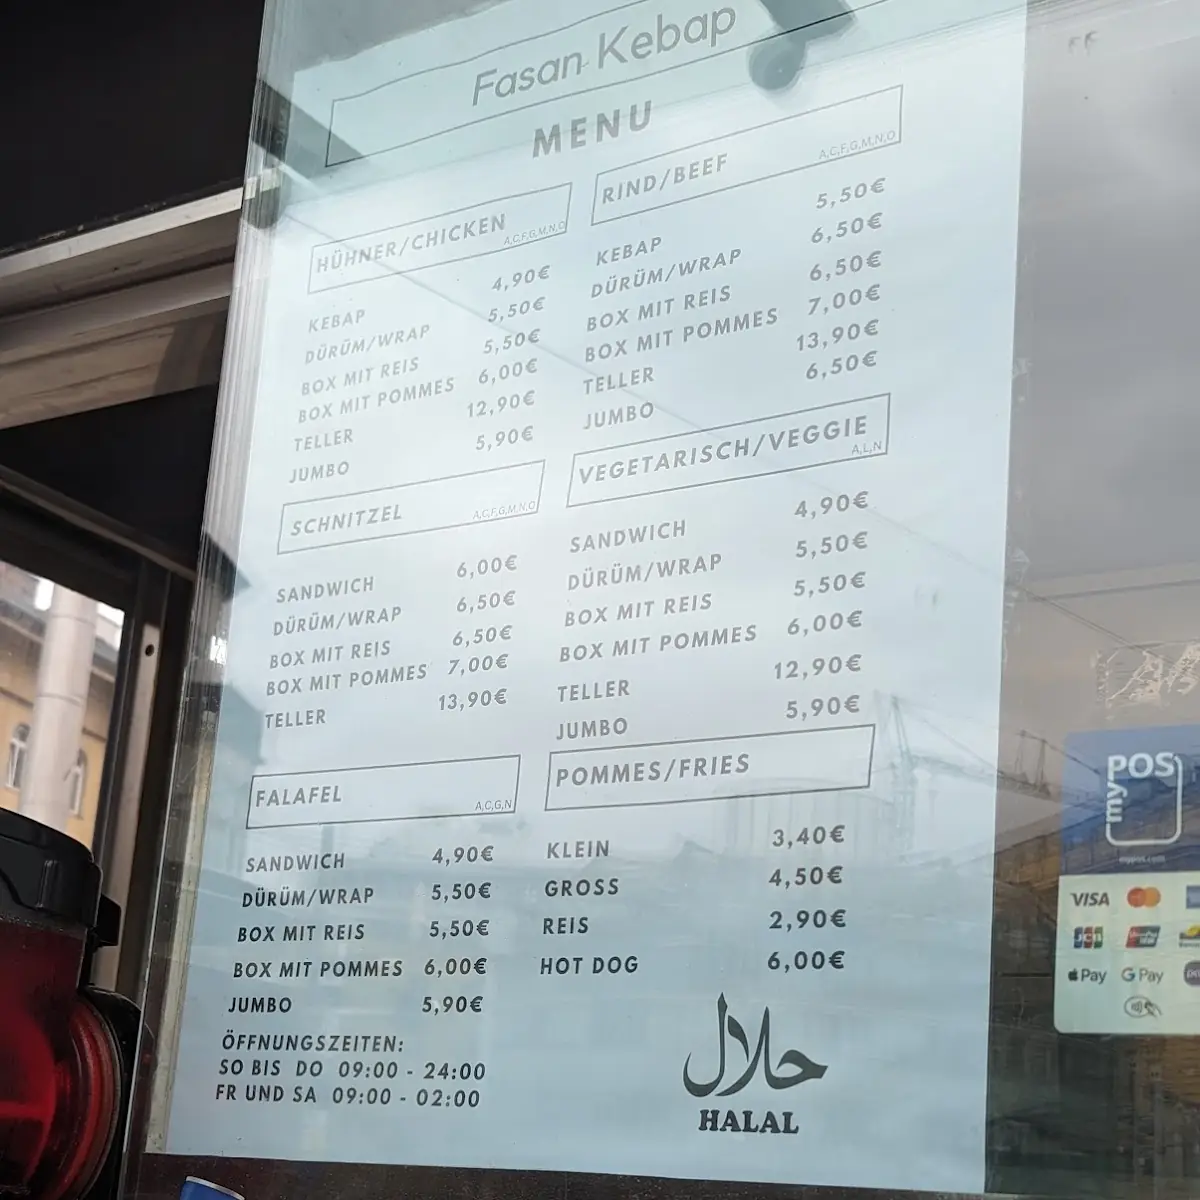 Fasan Kebap
MENU
HÜHNER/CHICKEN A,C,F,G,M,N,O
KEBAP 4,90€
DÜRÜM/WRAP 5,50€
BOX MIT REIS 5,50€
BOX MIT POMMES 6,00€
TELLER 12,90€
JUMBO 5,90€
RIND/BEEF A,C,F,G,M,N,O
KEBAP 5,50€
DÜRÜM/WRAP 6,50€
BOX MIT REIS 6,50€
BOX MIT POMMES 7,00€
TELLER 13,90€
JUMBO 6,50€
SCHNITZEL A,C,F,G,M,N,O
SANDWICH 6,00€
DÜRÜM/WRAP 6,50€
BOX MIT REIS 6,50€
BOX MIT POMMES 7,00€
TELLER 13,90€
VEGETARISCH/VEGGIE A,L,N
SANDWICH 4,90€
DÜRÜM/WRAP 5,50€
BOX MIT REIS 5,50€
BOX MIT POMMES 6,00€
TELLER 12,90€
JUMBO 5,90€
FALAFEL A,C,G,N
SANDWICH 4,90€
DÜRÜM/WRAP 5,50€
BOX MIT REIS 5,50€
BOX MIT POMMES 6,00€
JUMBO 5,90€
POMMES/FRIES
KLEIN 3,40€
GROSS 4,50€
REIS 2,90€
HOT DOG 6,00€
ÖFFNUNGSZEITEN:
SO BIS DO 09:00 - 24:00
FR UND SA 09:00 - 02:00
حلال
HALAL
myPOS
mypos.com
VISA
JCB
Pay G Pay